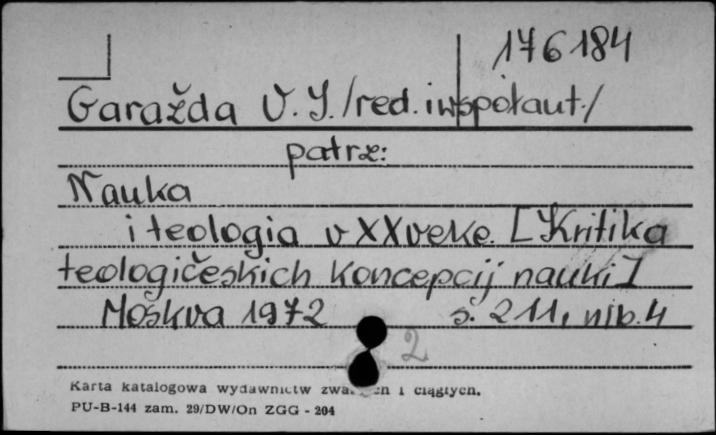 176184
Garažda V. J. /red. i współaut./
patrz:
Nauka
i teologia v XX veke. [Kritika
teologičeskich koncepcij nauki]
Moskva 1972 s. 211, nlb. 4
2
Karta katalogowa wydawnictw i ciągłych.
PU-B-144 zam. 29/DW/On ZGG - 204